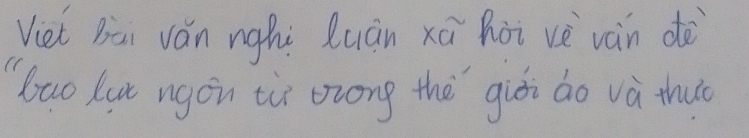 Viết bài văn nghị luận xã hội về vấn đề
"bạo lực ngôn từ trong thế giới ảo và thực